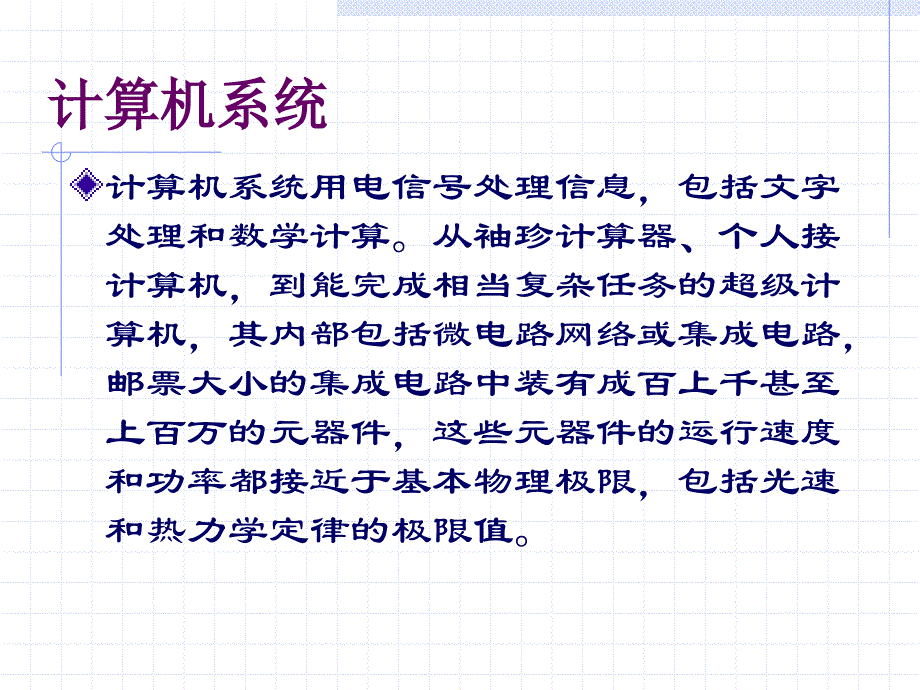 计算机系统
计算机系统用电信号处理信息，包括文字
处理和数学计算。从袖珍计算器、个人接
计算机，到能完成相当复杂任务的超级计
算机，其内部包括微电路网络或集成电路，
邮票大小的集成电路中装有成百上千甚至
上百万的元器件，这些元器件的运行速度
和功率都接近于基本物理极限，包括光速
和热力学定律的极限值。